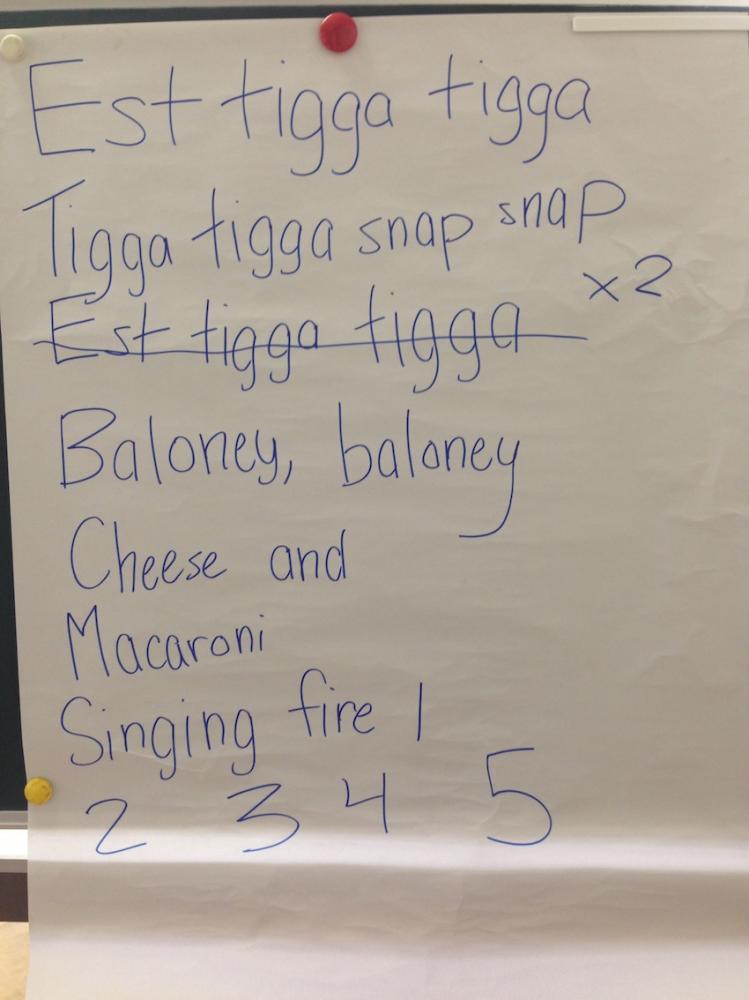 Est tigga tigga
Tigga tigga snap snap
x2
Est tigga tigga
Baloney, baloney
Cheese and
Macaroni
Singing fire 1
2 3 4 5